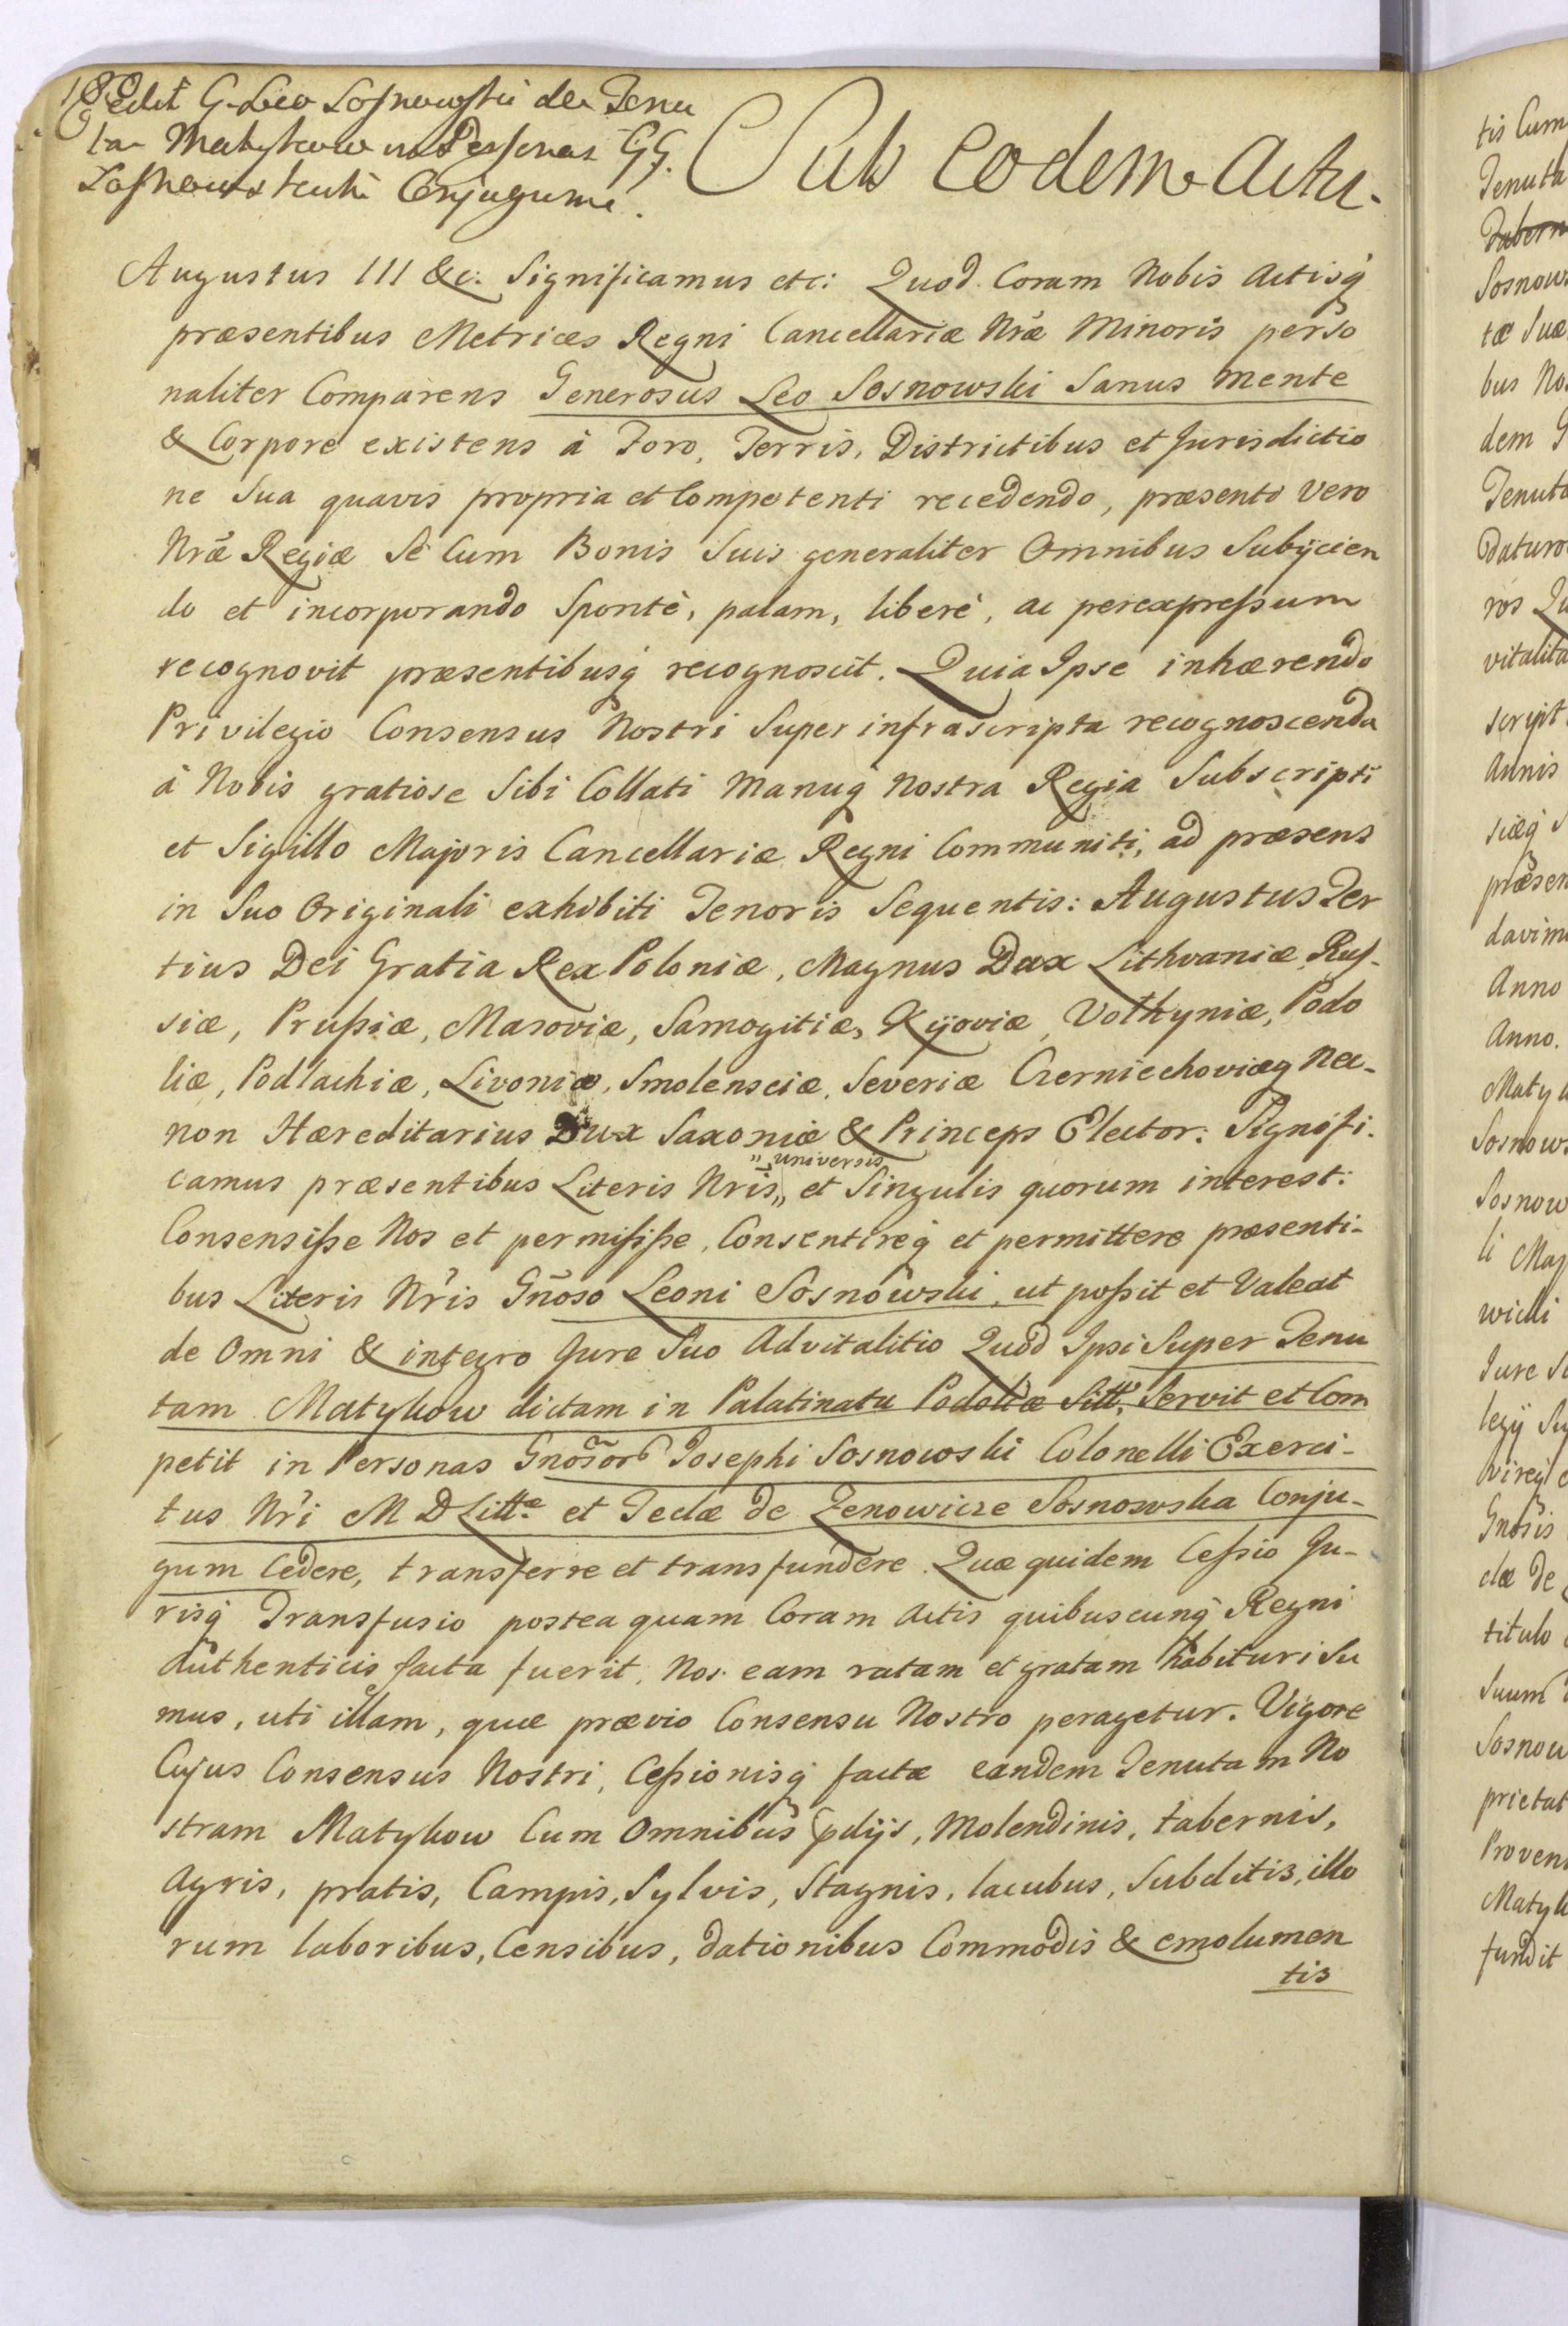 180
Cedit G. Leo Sosnowski de Tenu
ta Matykow in Personas GG.
Sosnowskich Conjugum.
Sub eodem Actu.
Augustus III &c: Significamus etc: Quod Coram Nobis Actisq́
præsentibus Metrices Regni Cancellariæ Nrǣ Minoris perso
naliter Comparens Generosus Leo Sosnowski Sanus mente
& Corpore existens à Foro, Terris, Districtibus et Jurisdictio
ne Sua quavis propria et Competenti recedendo, præsenti vero
Nrǣ Regiæ Se Cum Bonis Suis generaliter Omnibus Subÿcien
do et incorporando Spontè, palam, liberè, ac perexpressum
recognovit præsentibusq́ recognoscit. Quia Ipse inhærendo
Privilegio Consensus Nostri Super infrascripta recognoscenda
à Nobis gratiose Sibi Collati Manuq́ Nostra Regia Subscripti
et Sigillo Majoris Cancellariæ Regni Communiti, ad præsens
in Suo Originali exhibiti Tenoris Sequentis: Augustus Ter
tius Dei Gratia Rex Poloniæ, Magnus Dux Lithvaniæ Rus-
siæ, Prussiæ, Masoviæ, Samogitiæ, Kijoviæ, Volhyniæ, Podo
liæ, Podlachiæ, Livoniæ, Smolensciæ, Severiæ Czerniechoviæq́ Nec-
non Hæreditarius Dux Saxoniæ & Princeps Elector: Signifi-
camus præsentibus Literis Nris „universis„ et Singulis quorum interest:
Consensisse Nos et permisisse, Consentireq́ et permittere præsenti-
bus Literis Nr̃is Gñoso Leoni Sosnowski, ut possit et Valeat
de Omni & integro Jure Suo Advitalitio Quod Ipsi Super Tenu
tam Matykow dictam in Palatinatu Podoliæ Sittam, Servit et Com
petit in Personas Gnosor̃ Josephi Sosnowski Colonelli Exerci-
tus Nr̃i M D Littæ et Teclæ de Zenowicze Sosnowska Conju-
gum Cedere, transferre et transfundere. Quæ quidem Cessio Ju-
risq́ Transfusio postea quam Coram Actis quibuscunq́ Regni
Authenticis facta fuerit, Nos eam ratam et gratam habituri Su
mus, uti illam, quæ prævio Consensu Nostro peragetur. Vigore
Cujus Consensus Nostri, Cessionisq́ factæ eandem Tenutam No
stram Matykow Cum Omnibus pdijs, Molendinis, tabernis,
Agris, pratis, Campis, Sylvis, Stagnis, lacubus, Subditis, illo
rum laboribus, Censibus, dationibus Commodis & emolumen
tis
tis Cum
Tenuta
Sosnows
tæ Suæ
bus No
dem G
Tenuta
Daturo
ros Qu
vitalita
script
Annis
siæq́ S
præsen
davim
Anno
Anno.
Matyk
Sosnows
Sosnow
li Maj
wicki
Jure S
legÿ Su
vireq́ e
Gnosis
clæ de
titulo
Suum
Sosnow
prietat
Proven
Matyk
fundit